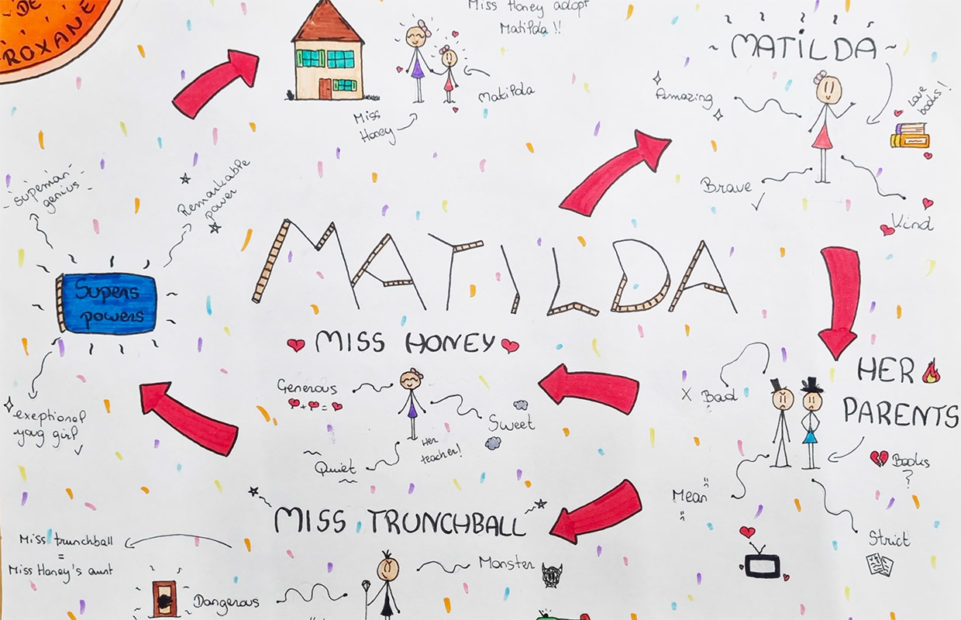 DE
ROXANE
Miss Honey adopt
Matilda !!
Matilda
Miss
Honey
~ MATILDA ~
Amazing
Love
books!
Brave
Kind
genius
Remarkable
power
Supers
powers
exeptional
girl
MATILDA
MISS HONEY
Generous
+ =
Sweet
Her
teacher!
Quiet
HER
PARENTS
X Bad
Books
?
Mean
Strict
MISS TRUNCHBALL
Miss trunchball
=
Miss Honey's aunt
Monster
Dangerous